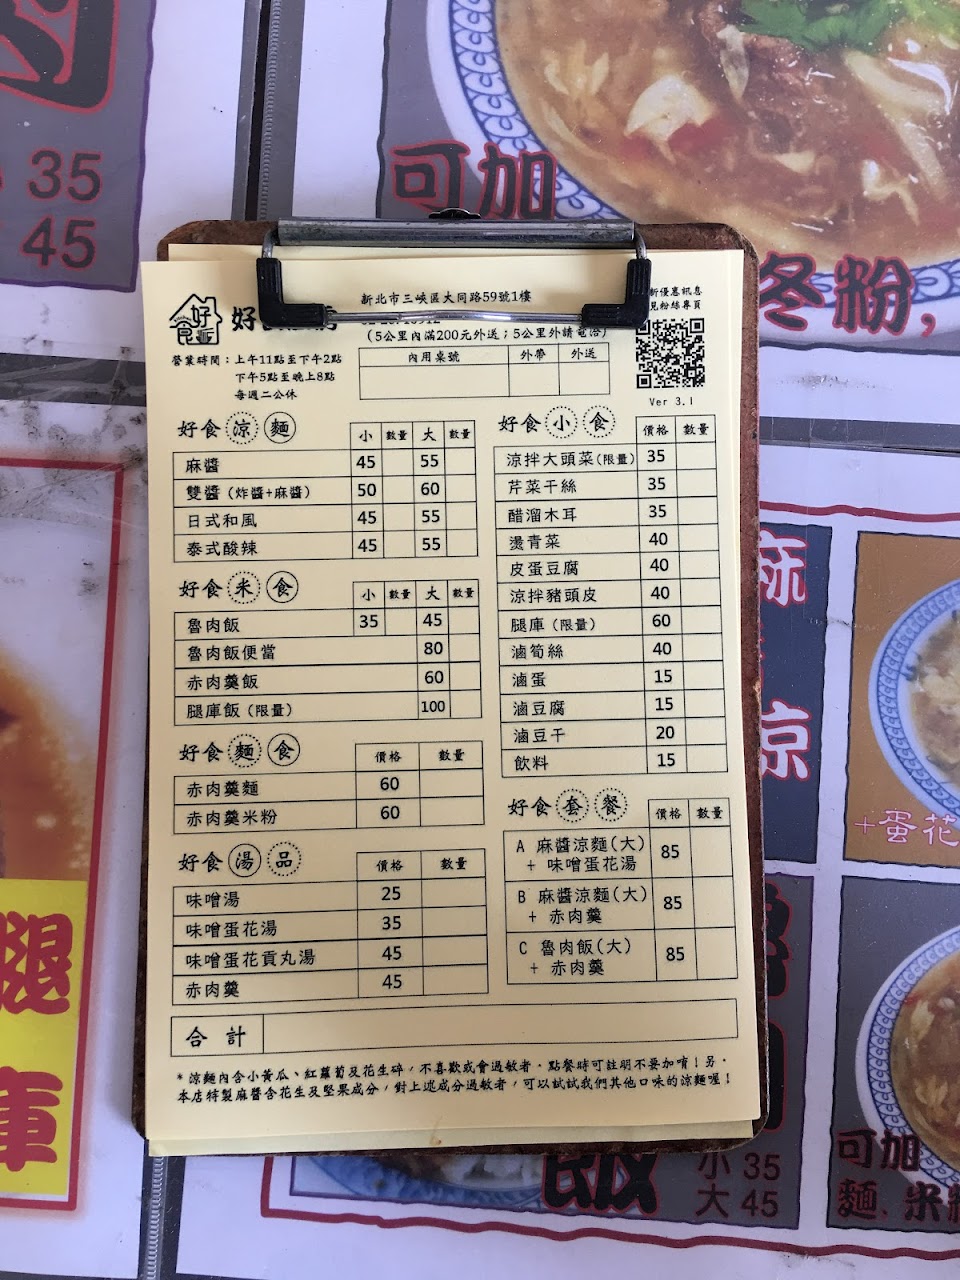 35
45
可加
冬粉,
新北市三峽區大同路59號1樓
(5公里內滿200元外送；5公里外請電洽)
營業時間：上午11點至下午2點
下午5點至晚上8點
每週二公休
內用桌號 外帶 外送
Ver 3.1
好食涼麵 小 數量 大 數量
麻醬 45 55
雙醬（炸醬+麻醬） 50 60
日式和風 45 55
泰式酸辣 45 55
好食米食 小 數量 大 數量
魯肉飯 35 45
魯肉飯便當 80
赤肉羹飯 60
腿庫飯（限量） 100
好食麵食 價格 數量
赤肉羹麵 60
赤肉羹米粉 60
好食湯品 價格 數量
味噌湯 25
味噌蛋花湯 35
味噌蛋花貢丸湯 45
赤肉羹 45
好食小食 價格 數量
涼拌大頭菜(限量) 35
芹菜干絲 35
醋溜木耳 35
燙青菜 40
皮蛋豆腐 40
涼拌豬頭皮 40
腿庫（限量） 60
滷筍絲 40
滷蛋 15
滷豆腐 15
滷豆干 20
飲料 15
好食套餐 價格 數量
A 麻醬涼麵(大)
+ 味噌蛋花湯 85
B 麻醬涼麵(大)
+ 赤肉羹 85
C 魯肉飯(大)
+ 赤肉羹 85
合計
*涼麵內含小黃瓜、紅蘿蔔及花生碎，不喜歡或會過敏者，點餐時可註明不要加唷！另，
本店特製麻醬含花生及堅果成分，對上述成分過敏者，可以試試我們其他口味的涼麵喔！
涼
+蛋花
腿
庫
飯
小 35
大 45
可加
麵、米